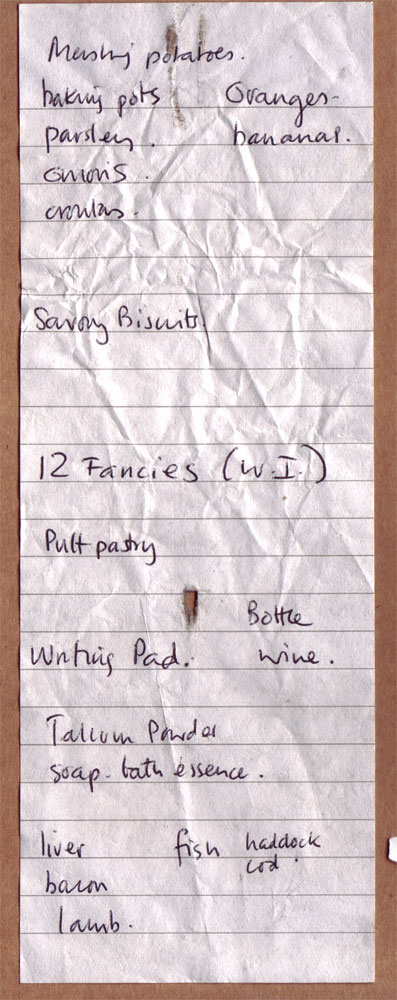 Mashing potatoes.
baking pots Oranges-
parsley. bananas.
onions.
Savoury Biscuits.
12 Fancies (W.I.)
Puff pastry
Bottle
Writing Pad. wine.
Talcum Powder
soap - bath essence.
liver fish haddock
cod.
bacon
lamb.